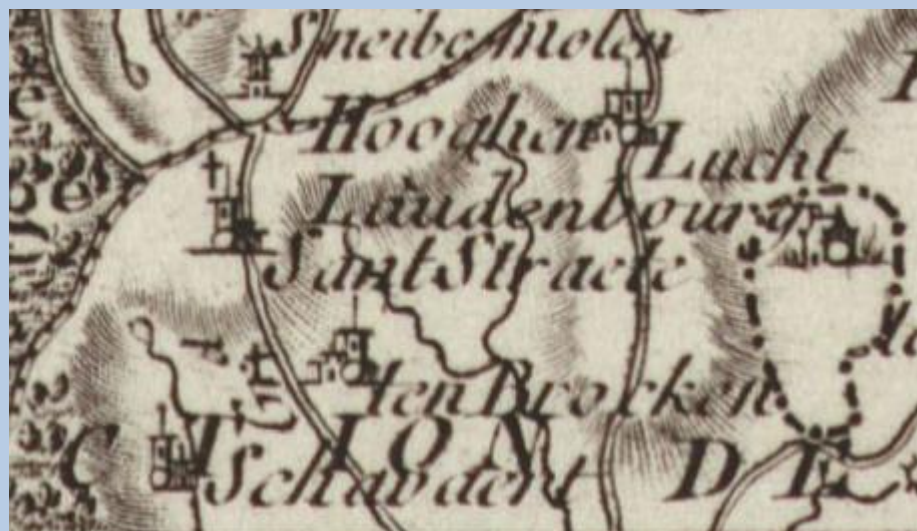 Sneibe Molen
Hooghen
Lucht
Laudenbourg
Sant Straete
ten Broecken
C T I O N D E
Schavaert